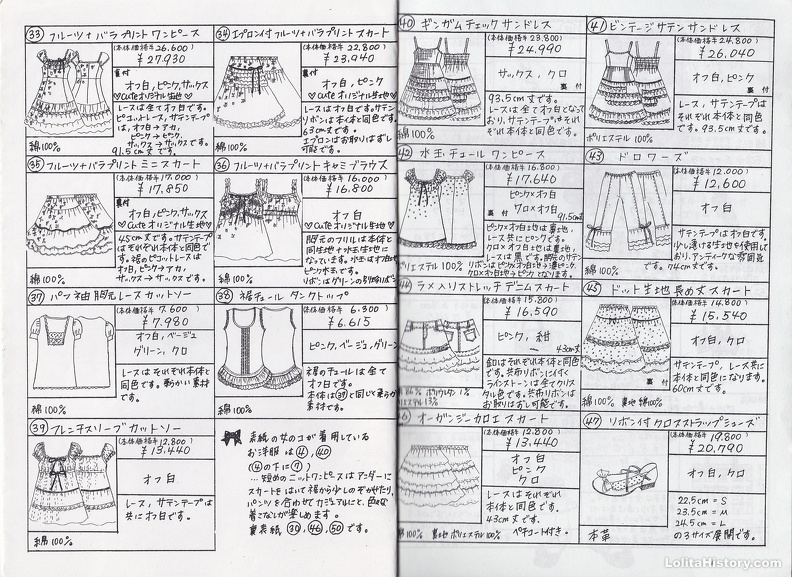 ㉝ フルーツ+バラプリント ワンピース
(本体価格¥26,600)
¥27,930
裏付
オフ白, ピンク, サックス
♡Cuteオリジナル生地♡
レースは全てオフ白です。
ピコットレース, サテンテープ
は, オフ白→アカ,
ピンク→ピンク,
サックス→サックスです。
91.5cm丈です。
綿100%
㉞ エプロン付フルーツ+バラプリントスカート
(本体価格¥22,800)
¥23,940
裏付
オフ白, ピンク
♡Cuteオリジナル生地♡
レースはオフ白です。サテン
リボンは本体と同色です。
63cm丈です。
エプロンはお取りはずし
可能です。
綿100%
㉟ フルーツ+バラプリントミニスカート
(本体価格¥17,000)
¥17,850
裏付
オフ白, ピンク, サックス
♡Cuteオリジナル生地♡
45cm丈です。サテンテープ
はそれぞれ本体と同色で
す。裾のピコットレースは
オフ白, ピンク→アカ,
サックス→サックスです。
綿100%
㊱ フルーツ+バラプリントキャミブラウス
(本体価格¥16,000)
¥16,800
オフ白
♡Cuteオリジナル生地♡
胸元のフリルは本体と
同生地+水玉生地に
なっています。水玉はオフ白地
ピンク水玉です。
綿100%
㊲ パフ袖 胸元レースカットソー
(本体価格¥7,600)
¥7,980
オフ白, ベージュ
グリーン, クロ
レースはそれぞれ本体と
同色です。
綿100%
㊳ 裾チュール タンクトップ
(本体価格¥6,300)
¥6,615
ピンク, ベージュ, グリーン
裾のチュールは全て
オフ白です。
本体は㊴と同じ柔らか
素材です。
綿100%
㊴ フレンチスリーブ カットソー
(本体価格¥12,800)
¥13,440
オフ白
レース, サテンテープは
共にオフ白です。
綿100%
表紙の女のコが着用している
お洋服は④, ㊵
(④の下に⑦)
…短めのニットワンピースはアンダーに
スカートをはいて裾から少しのぞかせたり,
パンツを合わせてカジュアルにと, 色々な
着こなしが楽しめます。
裏表紙, ㉚, ㊻, ㊿です。
㊵ ギンガムチェック サンドレス
(本体価格¥23,800)
¥24,990
サックス, クロ
93.5cm丈です。
レースは全てオフ白となって
おり, サテンテープはそれ
ぞれ本体と同色です。
綿100%
㊶ ビンテージサテン サンドレス
(本体価格¥24,800)
¥26,040
オフ白, ピンク
裏付
レース, サテンテープは
それぞれ本体と同色
です。93.5cm丈です。
ポリエステル 100%
㊷ 水玉チュール ワンピース
(本体価格¥16,800)
¥17,640
ピンク×オフ白
クロ×オフ白
裏付
91.5cm丈
ピンク×オフ白地は裏地,
レース共にピンクです。
クロ×オフ白地は裏地,
レースは黒です。胴元のサテン
ポリエステル 100%
㊸ ドロワーズ
(本体価格¥12,000)
¥12,600
オフ白
サテンテープはオフ白です。
少し透ける生地を使用して
おり, アンティークな雰囲気
です。74cm丈です。
綿100%
㊹ ラメ入りストレッチ デニムスカート
(本体価格¥15,800)
¥16,590
ピンク, 紺
43cm丈
釦はそれぞれ本体と同色
です。共布リボンに付く
ラインストーンは全てクリス
タル色です。共布リボンは
お取りはずし可能です。
ポリウレタン 1%
㊺ ドット生地長め丈スカート
(本体価格¥14,800)
¥15,540
オフ白, クロ
裏付
サテンテープ, レース共に
本体と同色になります。
60cm丈です。
綿100% 裏地 綿100%
オーガンジーカロエスカート
(本体価格¥12,800)
¥13,440
オフ白
ピンク
クロ
レースはそれぞれ
本体と同色です。
43cm丈です。
ペチコート付き。
綿100% 裏地 ポリエステル100%
㊼ リボン付クロスストラップシューズ
(本体価格¥19,800)
¥20,790
オフ白, クロ
22.5cm = S
23.5cm = M
24.5cm = L
の3サイズ展開です。
本革
LolitaHistory.com